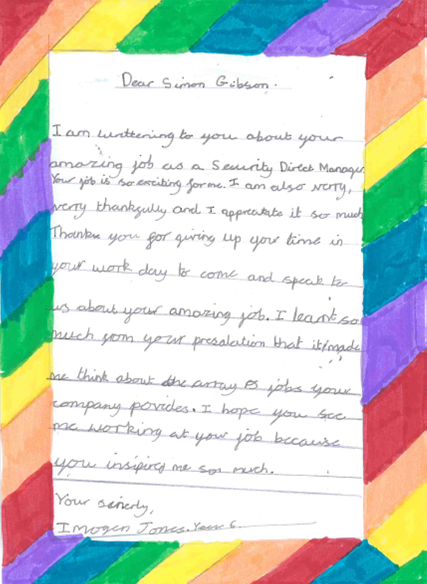 Dear Simon Gibson.
I am writtening to you about your
amazing job as a Security Direct Manager
Your job is so exciting for me. I am also verry,
verry thankgully and I appreatate it so much
Thanke you for giving up your time in
your work day to come and speak to
us about your amazing job. I learnt so
much from your presalation that it made
me think about the array of jobs your
company povides. I hope you see
me working at your job because
you insipired me son much.
Your sincerly,
Imogen Jones. Year 6